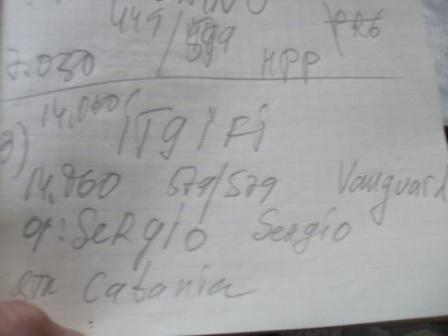 449 / 599
7.050 HPP
14,060
3) IT9IFJ
14,060 579/579 Vanguard
op: SeRgio Sergio
QTH Catania